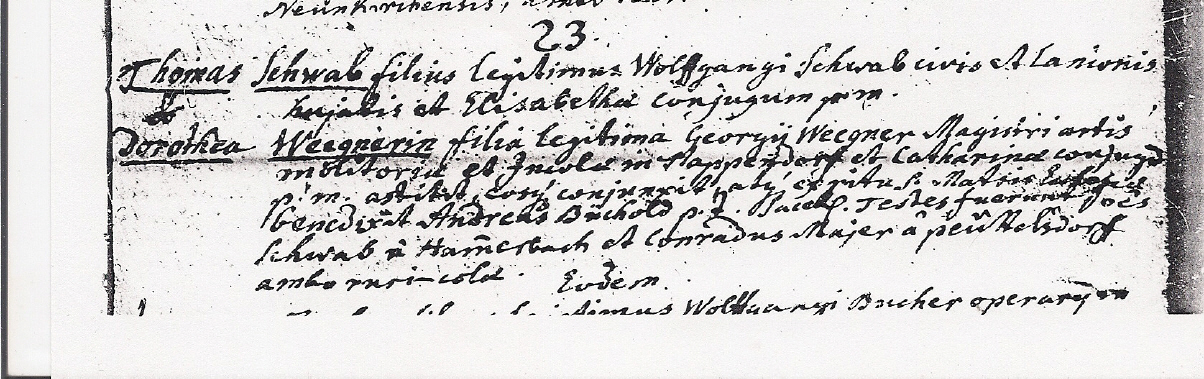 Neünkirchensis,
23.
Thomas Schwab filius legitimus Wolffgangi Schwab civis et Lanionis
& hujatis et Elisabethæ conjugum p: m.
Dorothea Weegnerin filia legitima Georgij Weegner Magistri artis
molitoriæ et Incolæ in Pappendorff et Catharinæ conjugum
p: m. astitit, eosq conjunxit, atq ex ritu S. Matris Ecclesiæ
benedixit Andreas Büchold p. t. Sacell. Testes fuerunt Joes
Schwab â Ham̄erbach et Conradus Majer â peüttelsdorff
ambo ruricolæ. Eodem.
legitimus Wolffgangi Bucher operarij in